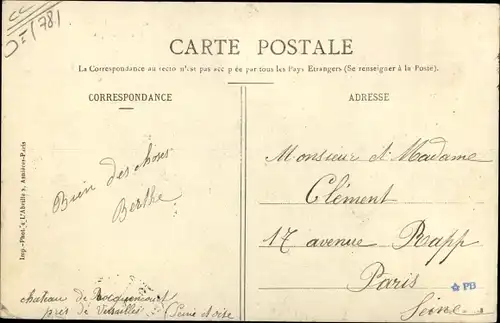 CARTE POSTALE
La Correspondance au recto n'est pas acceptée par tous les Pays Etrangers (Se renseigner à la Poste).
CORRESPONDANCE
ADRESSE
Bien des choses
Berthe
Monsieur et Madame
Clément
17 avenue Rapp
Paris
Seine
château de Rocquencourt
près de Versailles (Seine et oise
Imp.-Phot. L'Abeille, Asnières-Paris
PB